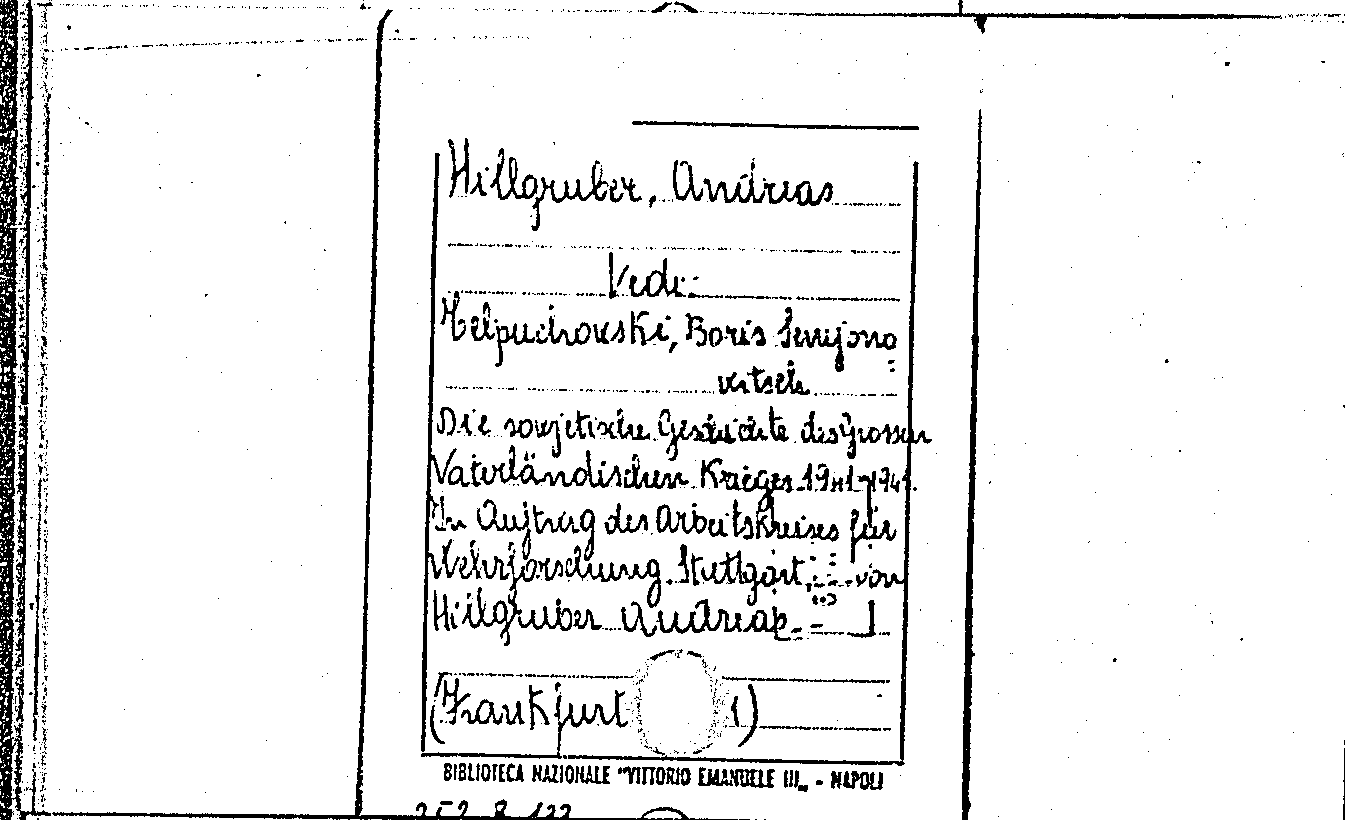 Hillgruber, Andreas
Vedi:
Telpuchovski, Boris Semjono=
vitsch
Die sowjetische Geschichte des Grossen
Vaterländischen Krieges 1941-1945.
Im Auftrag des Arbeitskreises für
Wehrforschung Stuttgart, ... von
Hillgruber Andreas
(Frankfurt 1)
BIBLIOTECA NAZIONALE "VITTORIO EMANUELE III„ - NAPOLI